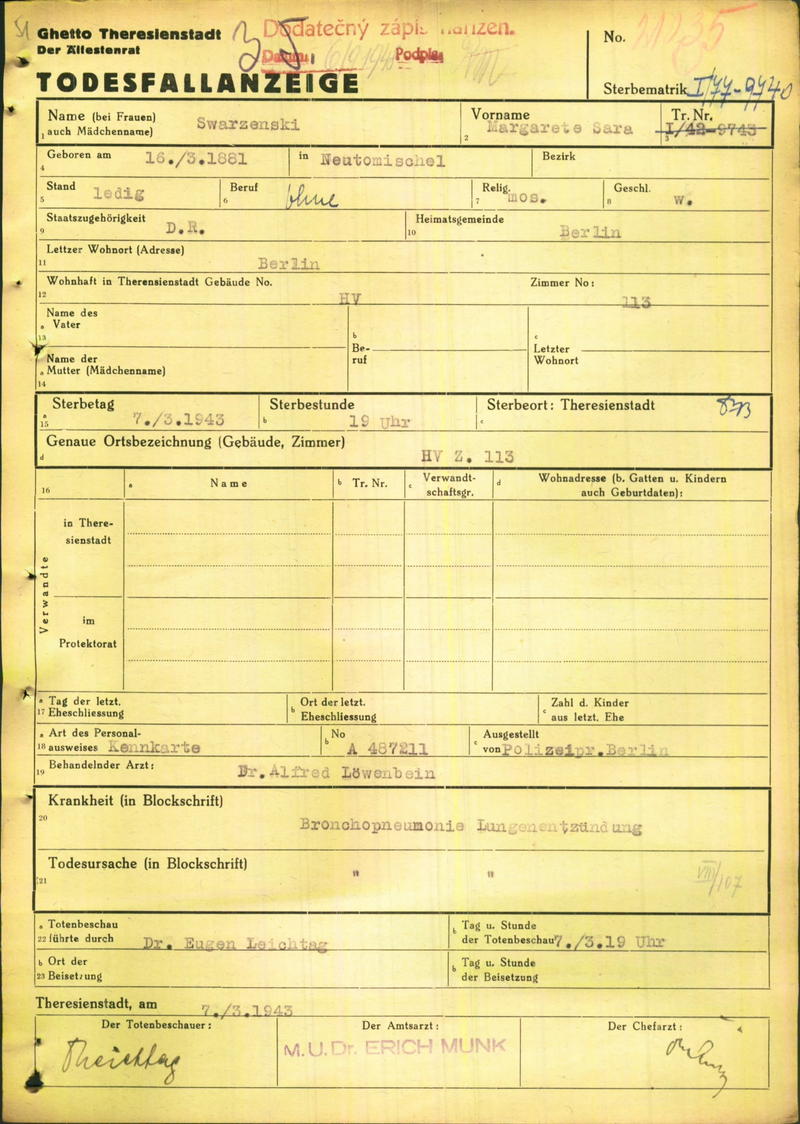 Ghetto Theresienstadt
Der Ältestenrat
TODESFALLANZEIGE
Dodatečný zápis
Datum: Podpis
No. 21235
Sterbematrik I/77-9740
Name (bei Frauen) Swarzenski
1 auch Mädchenname)
Vorname
2 Margarete Sara
Tr. Nr.
3 I/42-9743
Geboren am 16./3.1881
4
in Neutomischel
Bezirk
Stand ledig
5
Beruf ohne
6
Relig. mos.
7
Geschl. w.
8
Staatszugehörigkeit D.R.
9
Heimatsgemeinde
10 Berlin
Lettzer Wohnort (Adresse)
11 Berlin
Wohnhaft in Therensienstadt Gebäude No. Zimmer No:
12 HV 113
Name des
a Vater
13
Name der
a Mutter (Mädchenname)
14
b
Be-
ruf
c
Letzter
Wohnort
Sterbetag
a
15 7./3.1943
Sterbestunde
b 19 Uhr
Sterbeort: Theresienstadt
c
Genaue Ortsbezeichnung (Gebäude, Zimmer)
d HV Z. 113
16
a Name
b Tr. Nr.
c Verwandt-
schaftsgr.
d Wohnadresse (b. Gatten u. Kindern
auch Geburtdaten):
Verwandte
in There-
sienstadt
im
Protektorat
a Tag der letzt.
17 Eheschliessung
b Ort der letzt.
Eheschliessung
c Zahl d. Kinder
aus letzt. Ehe
a Art des Personal-
18 ausweises Kennkarte
b No
A 487211
c Ausgestellt
von Polizeipr.Berlin
Behandelnder Arzt: Dr.Alfred Löwenbein
19
Krankheit (in Blockschrift)
20
Bronchopneumonie Lungenentzündung
Todesursache (in Blockschrift)
21 " "
VIII/107
a Totenbeschau
22 führte durch Dr. Eugen Leichtag
b Tag u. Stunde
der Totenbeschau 7./3.19 Uhr
b Ort der
23 Beisetzung
b Tag u. Stunde
der Beisetzung
Theresienstadt, am 7./3.1943
Der Totenbeschauer:
Der Amtsarzt:
M.U.Dr. ERICH MUNK
Der Chefarzt: